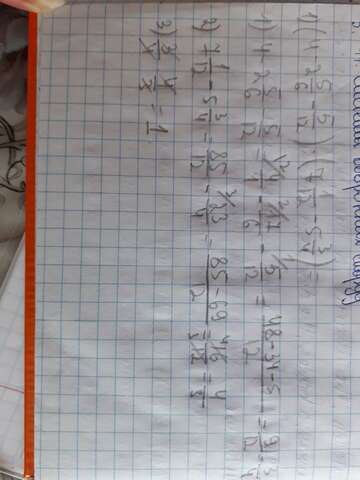 1) (4 - 2 5/6 - 5/12) · (7 1/12 - 5 3/4) =
1) 4 - 2 5/6 - 5/12 = 4/1 - 17/6 - 5/12 = (48 - 34 - 5)/12 = 9/12 = 3/4
2) 7 1/12 - 5 3/4 = 85/12 - 23/4 = (85 - 69)/12 = 16/12 = 4/3
3) 3/4 · 4/3 = 1